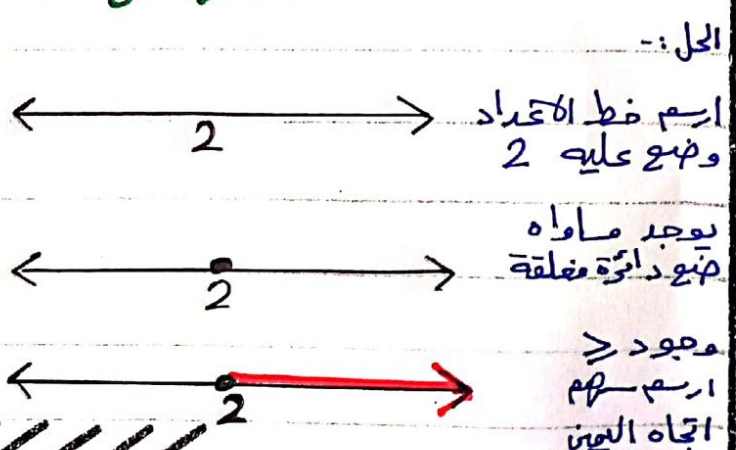 الحل :-
ارسم خط الاعداد
وضع عليه 2
2
يوجد مساواه
ضع دائرة مغلقة
2
وجود ≥
ارسم سهم
اتجاه اليمين
2